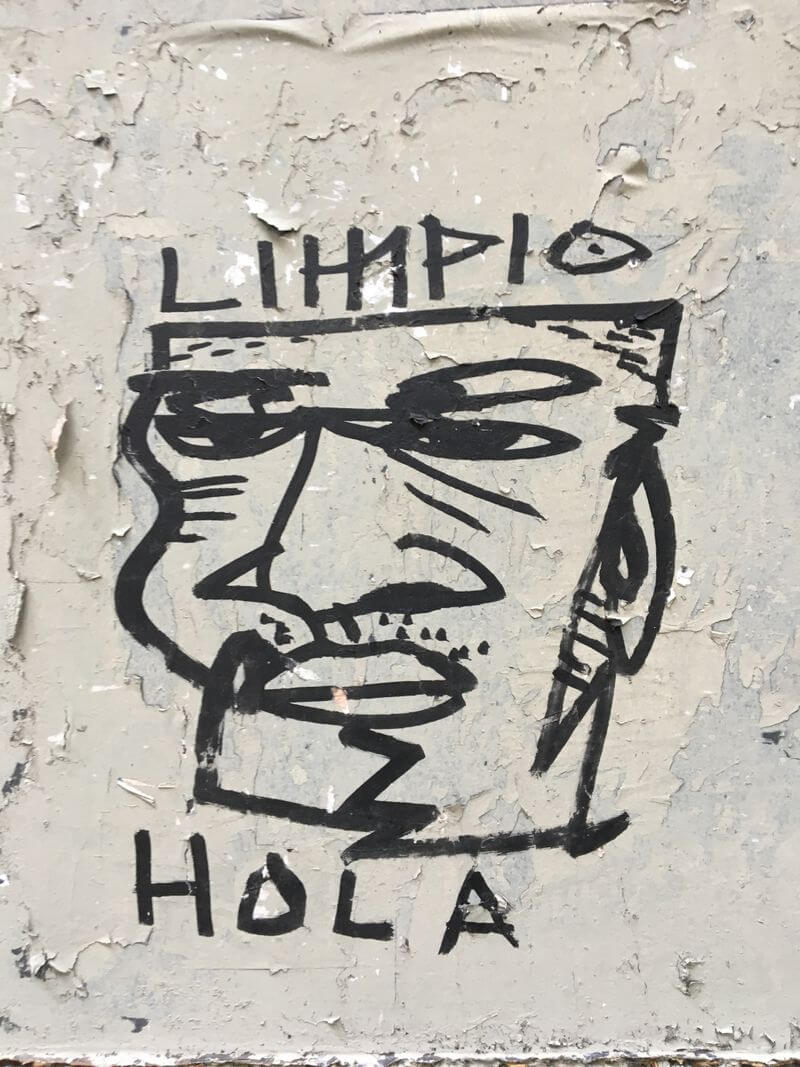 LIMPIO
HOLA